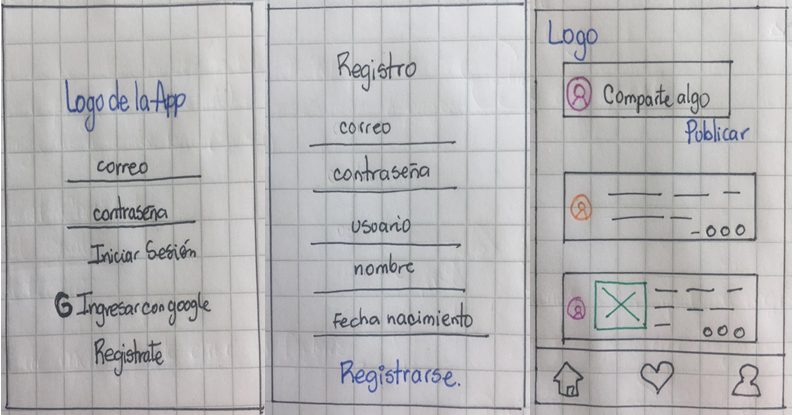 Logo de la App
correo
contraseña
Iniciar Sesión
G Ingresar con google
Registrate
Registro
correo
contraseña
usuario
nombre
Fecha nacimiento
Registrarse.
Logo
Comparte algo
Publicar